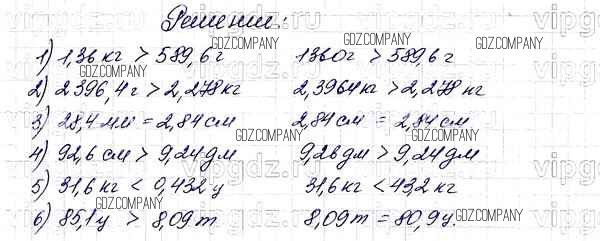 Решение:
1) 1,36 кг > 589,6 г 1360 г > 589,6 г
2) 2396,4 г > 2,278 кг 2,3964 кг > 2,278 кг
3) 28,4 мм = 2,84 см 2,84 см = 2,84 см
4) 92,6 см > 9,24 дм 9,26 дм > 9,24 дм
5) 31,6 кг < 0,432 ц 31,6 кг < 43,2 кг
6) 85,1 ц > 8,09 т 8,09 т = 80,9 ц.
GDZ.COMPANY
GDZ.COMPANY
GDZ.COMPANY
GDZ.COMPANY
GDZ.COMPANY
GDZ.COMPANY
GDZ.COMPANY
GDZ.COMPANY